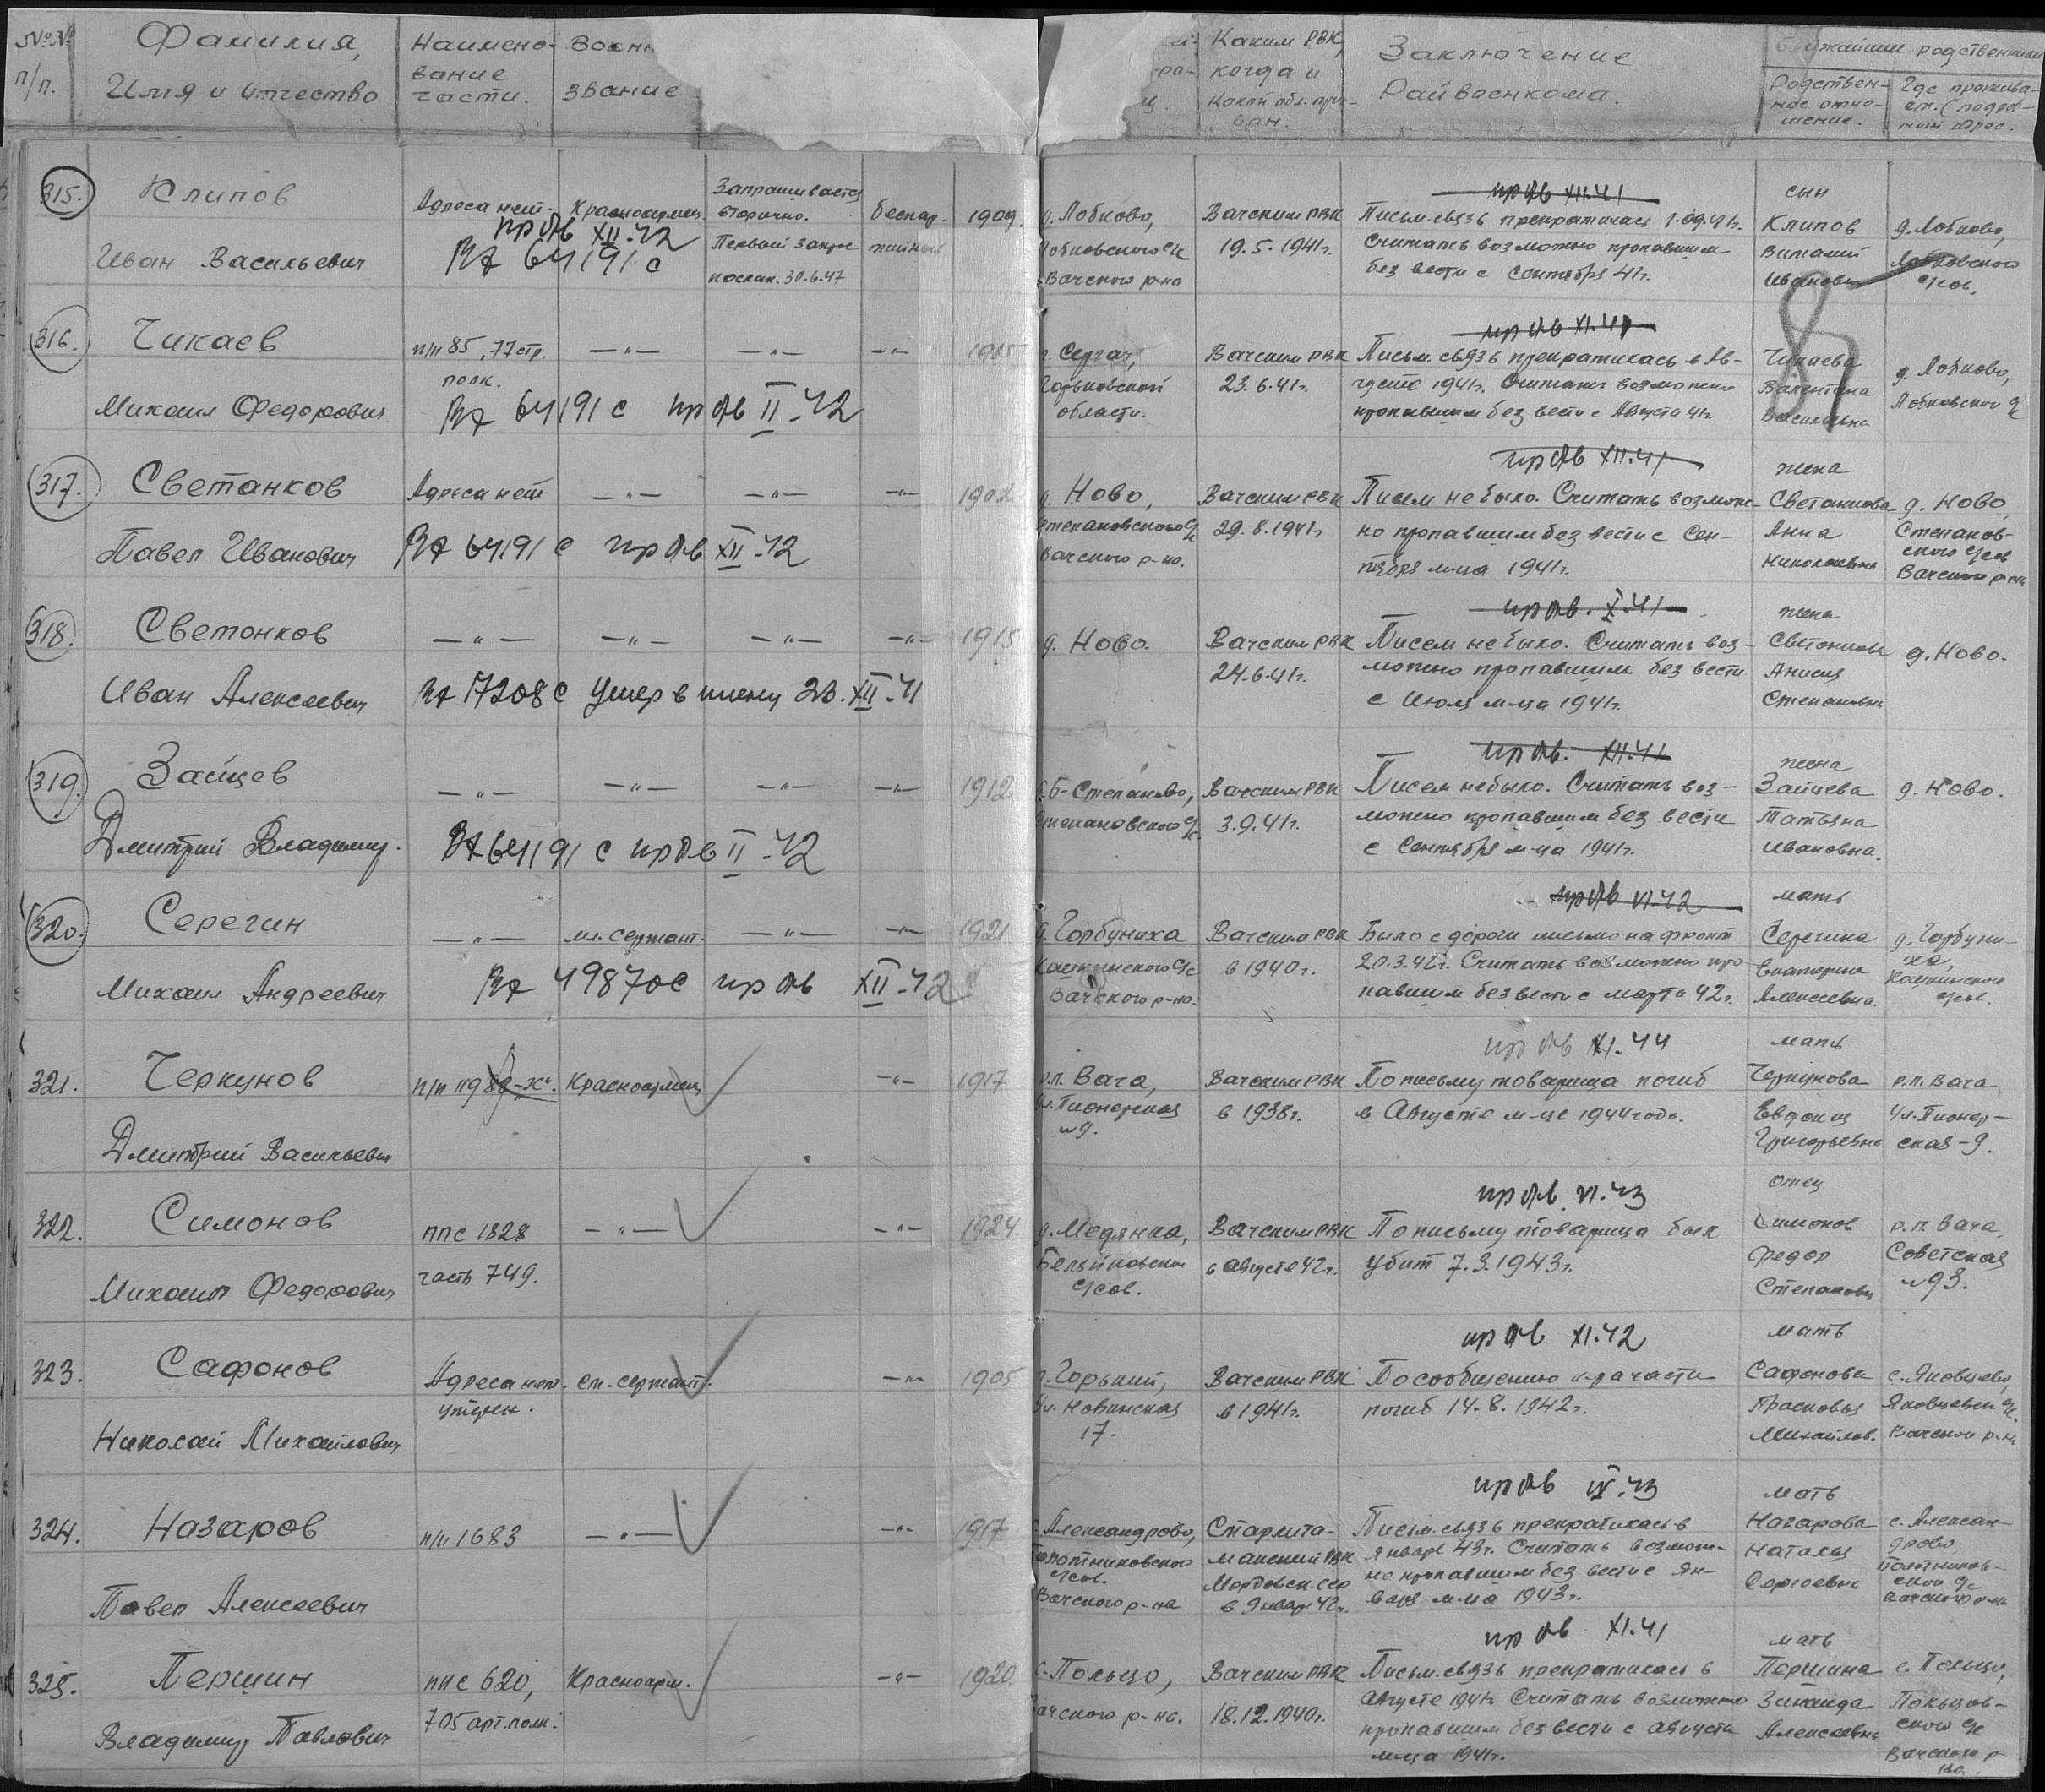 №№ п/п.
Фамилия, Имя и отчество
Наименование части.
Военн звание
Каким РВК, когда и какой обл. призван.
Заключение Райвоенкома.
Ближайшие родственники
Родственное отношение.
Где проживает. (подробный адрес.
315.
Клипов
Иван Васильевич
Адреса нет.
Красноармец.
пр отв XII-42
Вх 64191с
Запрашивается
вторично.
Первый запрос
послан. 30.6.47
беспартийный
1909.
д. Лобково,
Лобковского с/с
Вачского р-на
Вачским РВК
19.5.1941г.
пр отв XII.41
Письм. связь прекратилась
Считать возможно пропавшим
без вести с сентября 41г.
сын
Клипов
Виталий
Иванович
д. Лобково,
Лобковского
с/сов.
316.
Чикаев
Михаил Федорович
п/п 85, 77 стр.
полк.
— " —
— " —
— " —
1915
Вх 64191с пр отв II-42
г. Сергач,
Горьковской
области.
Вачским РВК
23.6.41г.
пр отв XI.41
Письм. связь прекратилась в Ав-
густе 1941г. Считать возможно
пропавшим без вести с Августа 41г.
Чикаева
Валентина
Васильевна
д. Лобково,
Лобковского с/с
317.
Светанков
Павел Иванович
Адреса нет
— " —
— " —
— " —
1902
Вх 64191с пр отв XII-42
д. Ново,
Степановского с/с
Вачского р-на.
Вачским РВК
29.8.1941г
пр отв XII.41
Писем не было. Считать возмож-
но пропавшим без вести с Сен-
тября м-ца 1941г.
жена
Светанкова
Анна
Николаевна
д. Ново
Степанов-
ского с/сов
Вачского р-на
318.
Светонков
Иван Алексеевич
— " —
— " —
— " —
— " —
1915
Вх 17208с умер в плену 23.XII-41
д. Ново.
Вачским РВК
24.6.41г.
пр отв. X.41
Писем не было. Считать воз-
можно пропавшим без вести
с Июля м-ца 1941г.
жена
Светонкова
Анисия
Степановна
д. Ново.
319.
Зайцев
Дмитрий Владимир.
— " —
— " —
— " —
— " —
1912
Вх 64191с пр отв II-42
д. Б-Степаново,
Степановского с/с
Вачским РВК
3.9.41г.
пр отв. XII.41
Писем не было. Считать воз-
можно пропавшим без вести
с Сентября м-ца 1941г.
жена
Зайцева
Татьяна
Ивановна.
д. Ново.
320.
Серегин
Михаил Андреевич
— " —
мл. сержант.
— " —
— " —
1921
Вх 49870с пр отв XII-42
д. Горбуниха
Вачского р-на.
Вачским РВК
в 1940г.
пр отв VI.42
Было с дороги письмо на фронт
20.3.42г. Считать возможно про
павшим без вести с марта 42г.
мать
Серегина
Екатерина
Алексеевна.
д. Горбуни-
ха,
с/сов.
321.
Черкунов
Дмитрий Васильевич
Красноармец
— " —
1917
р.п. Вача,
ул. Пионерская
№9.
Вачским РВК
в 1938г.
пр отв XI.44
По письму товарища погиб
в Августе м-це 1944 года.
мать
Черкунова
Евдокия
Григорьевна
р.п. Вача
ул. Пионер-
ская-9.
322.
Симонов
Михаил Федорович
ппс 1828
часть 749.
— " —
— " —
1924.
д. Медянка,
с/сов.
Вачским РВК
в августе 42г.
пр отв. VI.43
По письму товарища был
убит 7.3.1943г.
отец
Симонов
Федор
Степанович
р.п. Вача,
Советская
№93.
323.
Сафонов
Николай Михайлович
Адреса нет.
утерен.
ст. сержант.
— " —
1905
г. Горький,
17.
Вачским РВК
в 1941г.
пр отв XI.42
По сообщению к-ра части
погиб 14.8.1942г.
мать
Сафонова
Прасковья
Михайлов.
с. Яковцево,
Яковцевск с/с.
Вачского р-на
324.
Назаров
Павел Алексеевич
п/п 1683
— " —
— " —
1917
с. Александрово,
с/сов.
Вачского р-на
РВК
Мордовск. ССР
в Январе 42г.
пр отв IV.43
Письм. связь прекратилась в
январе 43г. Считать возмож-
но пропавшим без вести с Ян-
варя м-ца 1943г.
мать
Назарова
Наталья
Сергеевна
с. Алексан-
дрово,
Вачского р-на
325.
Першин
Владимир Павлович
ппс 620,
705 арт. полк.
Красноарм.
— " —
1920.
с. Польцо,
Вачского р-на.
Вачским РВК
18.12.1940г.
пр отв XI.41
Письм. связь прекратилась в
августе 1941г. Считать возможно
пропавшим без вести с августа
м-ца 1941г.
мать
Першина
Зинаида
Алексеевна
с. Польцо,
Польцов-
ского с/с
Вачского р-
на.